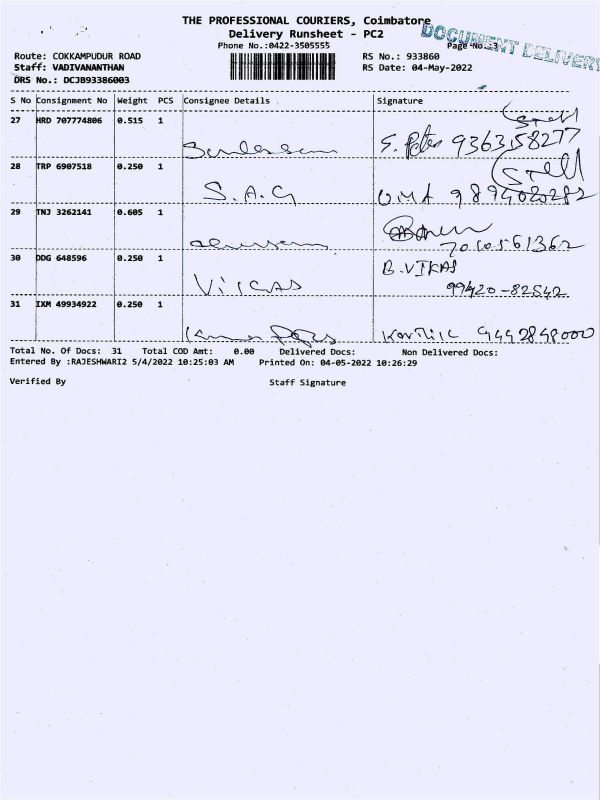 THE PROFESSIONAL COURIERS, Coimbatore
Delivery Runsheet - PC2
DOCUMENT DELIVERY
Phone No.:0422-3505555
Page No.:3
Route: COKKAMPUDUR ROAD
RS No.: 933860
Staff: VADIVANANTHAN
RS Date: 04-May-2022
DRS No.: DCJB93386003
S No Consignment No Weight PCS Consignee Details Signature
27 HRD 707774806 0.515 1
S. Peter 9363158277
28 TRP 6907518 0.250 1
S.A.G UMA 9894020282
29 TNJ 3262141 0.605 1
30 DDG 648596 0.250 1 B.VIKAS
VIKAS 99420-82542
31 IXM 49934922 0.250 1
Karthik 9442848000
Total No. Of Docs: 31 Total COD Amt: 0.00 Delivered Docs: Non Delivered Docs:
Entered By :RAJESHWARI2 5/4/2022 10:25:03 AM Printed On: 04-05-2022 10:26:29
Verified By Staff Signature